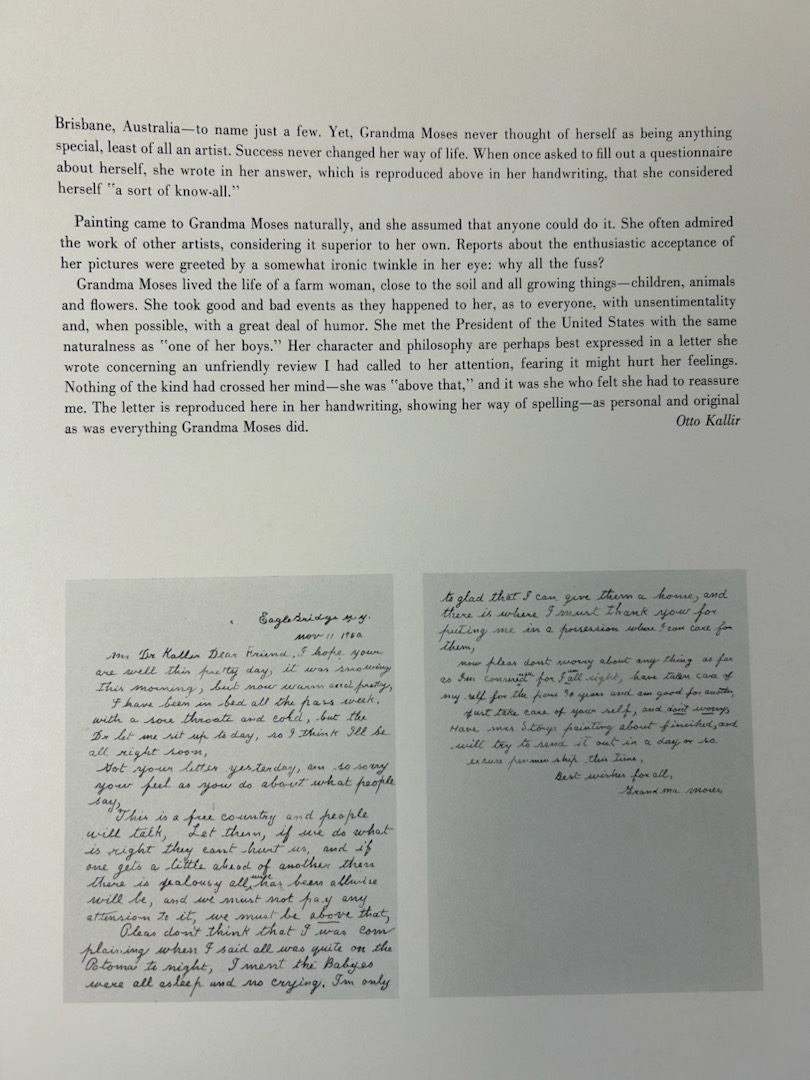 Brisbane, Australia—to name just a few. Yet, Grandma Moses never thought of herself as being anything
special, least of all an artist. Success never changed her way of life. When once asked to fill out a questionnaire
about herself, she wrote in her answer, which is reproduced above in her handwriting, that she considered
herself "a sort of know-all."
Painting came to Grandma Moses naturally, and she assumed that anyone could do it. She often admired
the work of other artists, considering it superior to her own. Reports about the enthusiastic acceptance of
her pictures were greeted by a somewhat ironic twinkle in her eye: why all the fuss?
Grandma Moses lived the life of a farm woman, close to the soil and all growing things—children, animals
and flowers. She took good and bad events as they happened to her, as to everyone, with unsentimentality
and, when possible, with a great deal of humor. She met the President of the United States with the same
naturalness as "one of her boys." Her character and philosophy are perhaps best expressed in a letter she
wrote concerning an unfriendly review I had called to her attention, fearing it might hurt her feelings.
Nothing of the kind had crossed her mind—she was "above that," and it was she who felt she had to reassure
me. The letter is reproduced here in her handwriting, showing her way of spelling—as personal and original
as was everything Grandma Moses did.
Otto Kallir
Eagle Bridge n.y.
nov 11
Mr Dr Kallir Dear Friend, I hope your
are well this pretty day, it was snowing
this morning, but now warm and pretty,
I have been in bed all the pass week,
with a sore throate and cold, but the
Dr let me sit up to day, so I think I'll be
all right soon,
Got your letter yesterday, am so sorry
your feel as your do about what people
say,
This is a free country and people
will talk, Let them, if we do what
is right they cant hurt us, and if
one gets a little ahead of another then
there is jealousy all, has been allwise
will be, and we must not pay any
attension to it, we must be above that,
Pleas don't think that I was com
plaining when I said all was quite on the
Potoma to night, I ment the Babyes
were all asleep and no crying. I'm only
to glad that I can give them a home, and
there is where I must thank your for
puting me in a possession where I can care for
them,
now pleas dont worry about any thing as far
as I'm for I'm all right, have taken care of
my self for the pass 90 years and am good for
just take care of your self, and don't worry,
Have mrs Storys painting about finished, and
will try to send it out in a day or so.
excuse penmen ship this time,
Best wishes for all,
Grand ma moses,